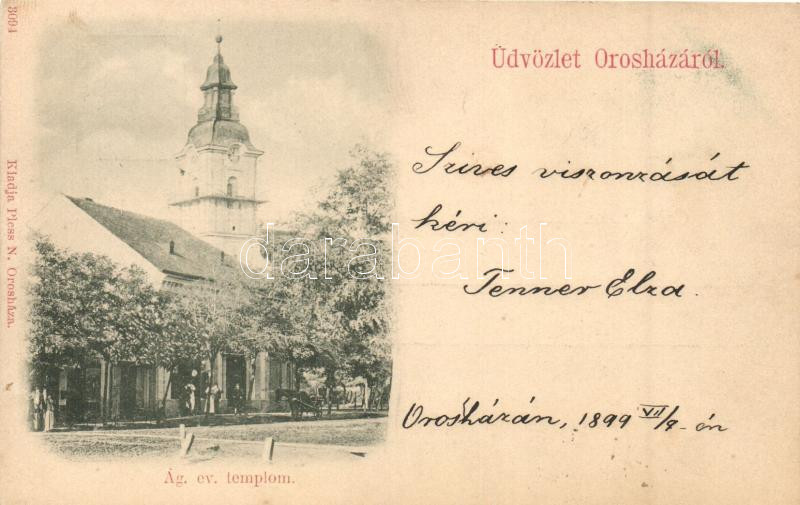 3094
Kiadja Pless N. Orosháza.
Üdvözlet Orosházáról.
Szives viszonzását
kéri:
Tenner Elza.
Orosházán, 1899 VII/9-én
Ág. ev. templom.
darabanth